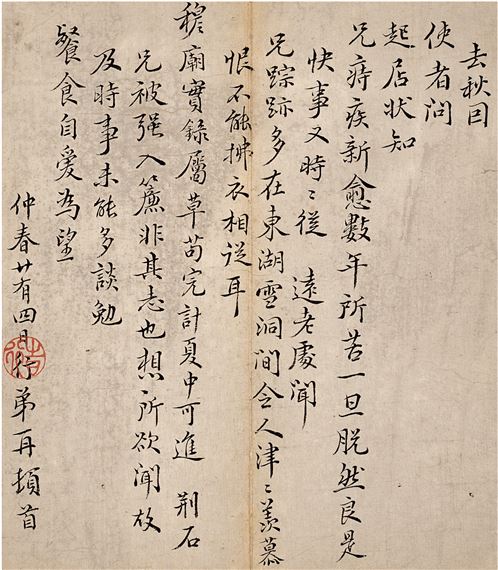 去秋因
使者问
起居状知
兄痔疾新愈數年所苦一旦脱然良是
快事又時〻從
遠老處聞
兄踪跡多在東湖雪洞間令人津〻羡慕
恨不能拂衣相從耳
穆廟實錄屬草苟完計夏中可進 荆石
兄被强入簾非其志也想所欲聞故
及時事未能多談勉
餐食自愛為望
仲春廿有四日行弟再頓首